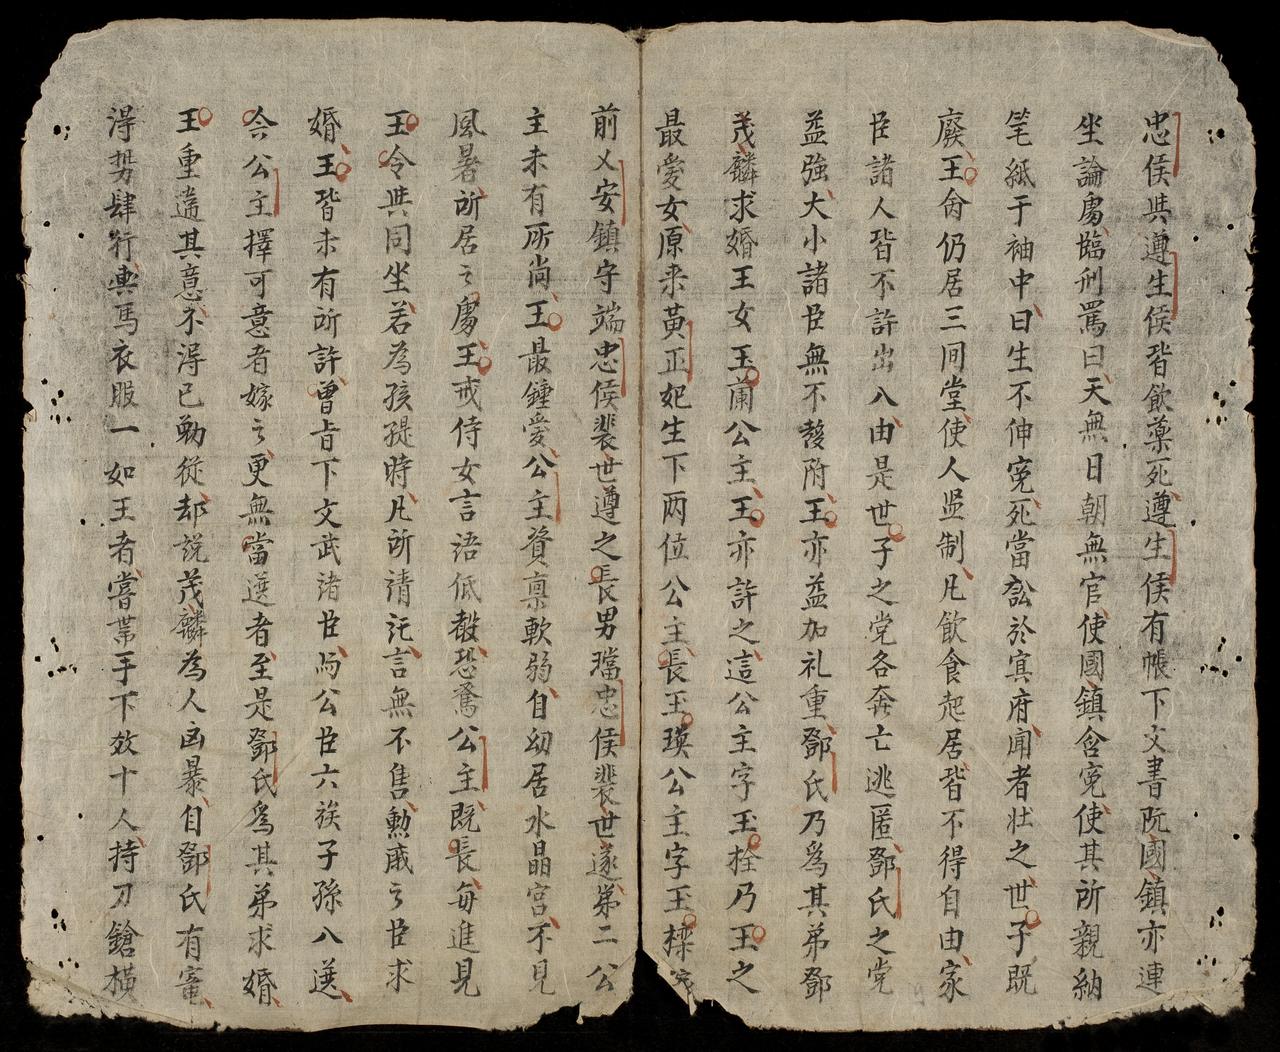 忠侯典遵生侯皆飲藥死遵生侯有帳下文書阮國鎮亦連
坐論䖏臨刑罵曰天無日朝無官使國鎮含寃使其所親納
笔紙于袖中曰生不伸寃死當訟於寘府闻者壯之世子既
廢王命仍居三间堂使人监制凡飲食起居皆不得自由家
臣諸人皆不許出入由是世子之党各奔亡逃匿鄧氏之党
益強大小諸臣無不附王亦益加礼重鄧氏乃爲其弟鄧
茂麟求婚王女玉蘭公主王亦許之這公主字玉拴乃王之
最愛女原来黄正妃生下两位公主長玉瑛公主字玉
前乂安鎮守端忠侯裴世遵之長男璫忠侯裴世遂弟二公
主未有所尚王最鍾愛公主資禀軟弱自幼居水晶宫不見
風暑所居之䖏王戒侍女言语低聲恐驚公主既長每進見
王令與同坐若為孩提時凡所請托言無不售勲戚之臣求
婚王皆未有所許曾旨下文武诸臣与公臣六族子孫入選
令公主擇可意者嫁之更無當選者至是鄧氏爲其弟求婚
王重違其意不得已勉從却說茂麟為人凶暴自鄧氏有寵
得势肆行輿馬衣服一如王者嘗带手下数十人持刀鎗横